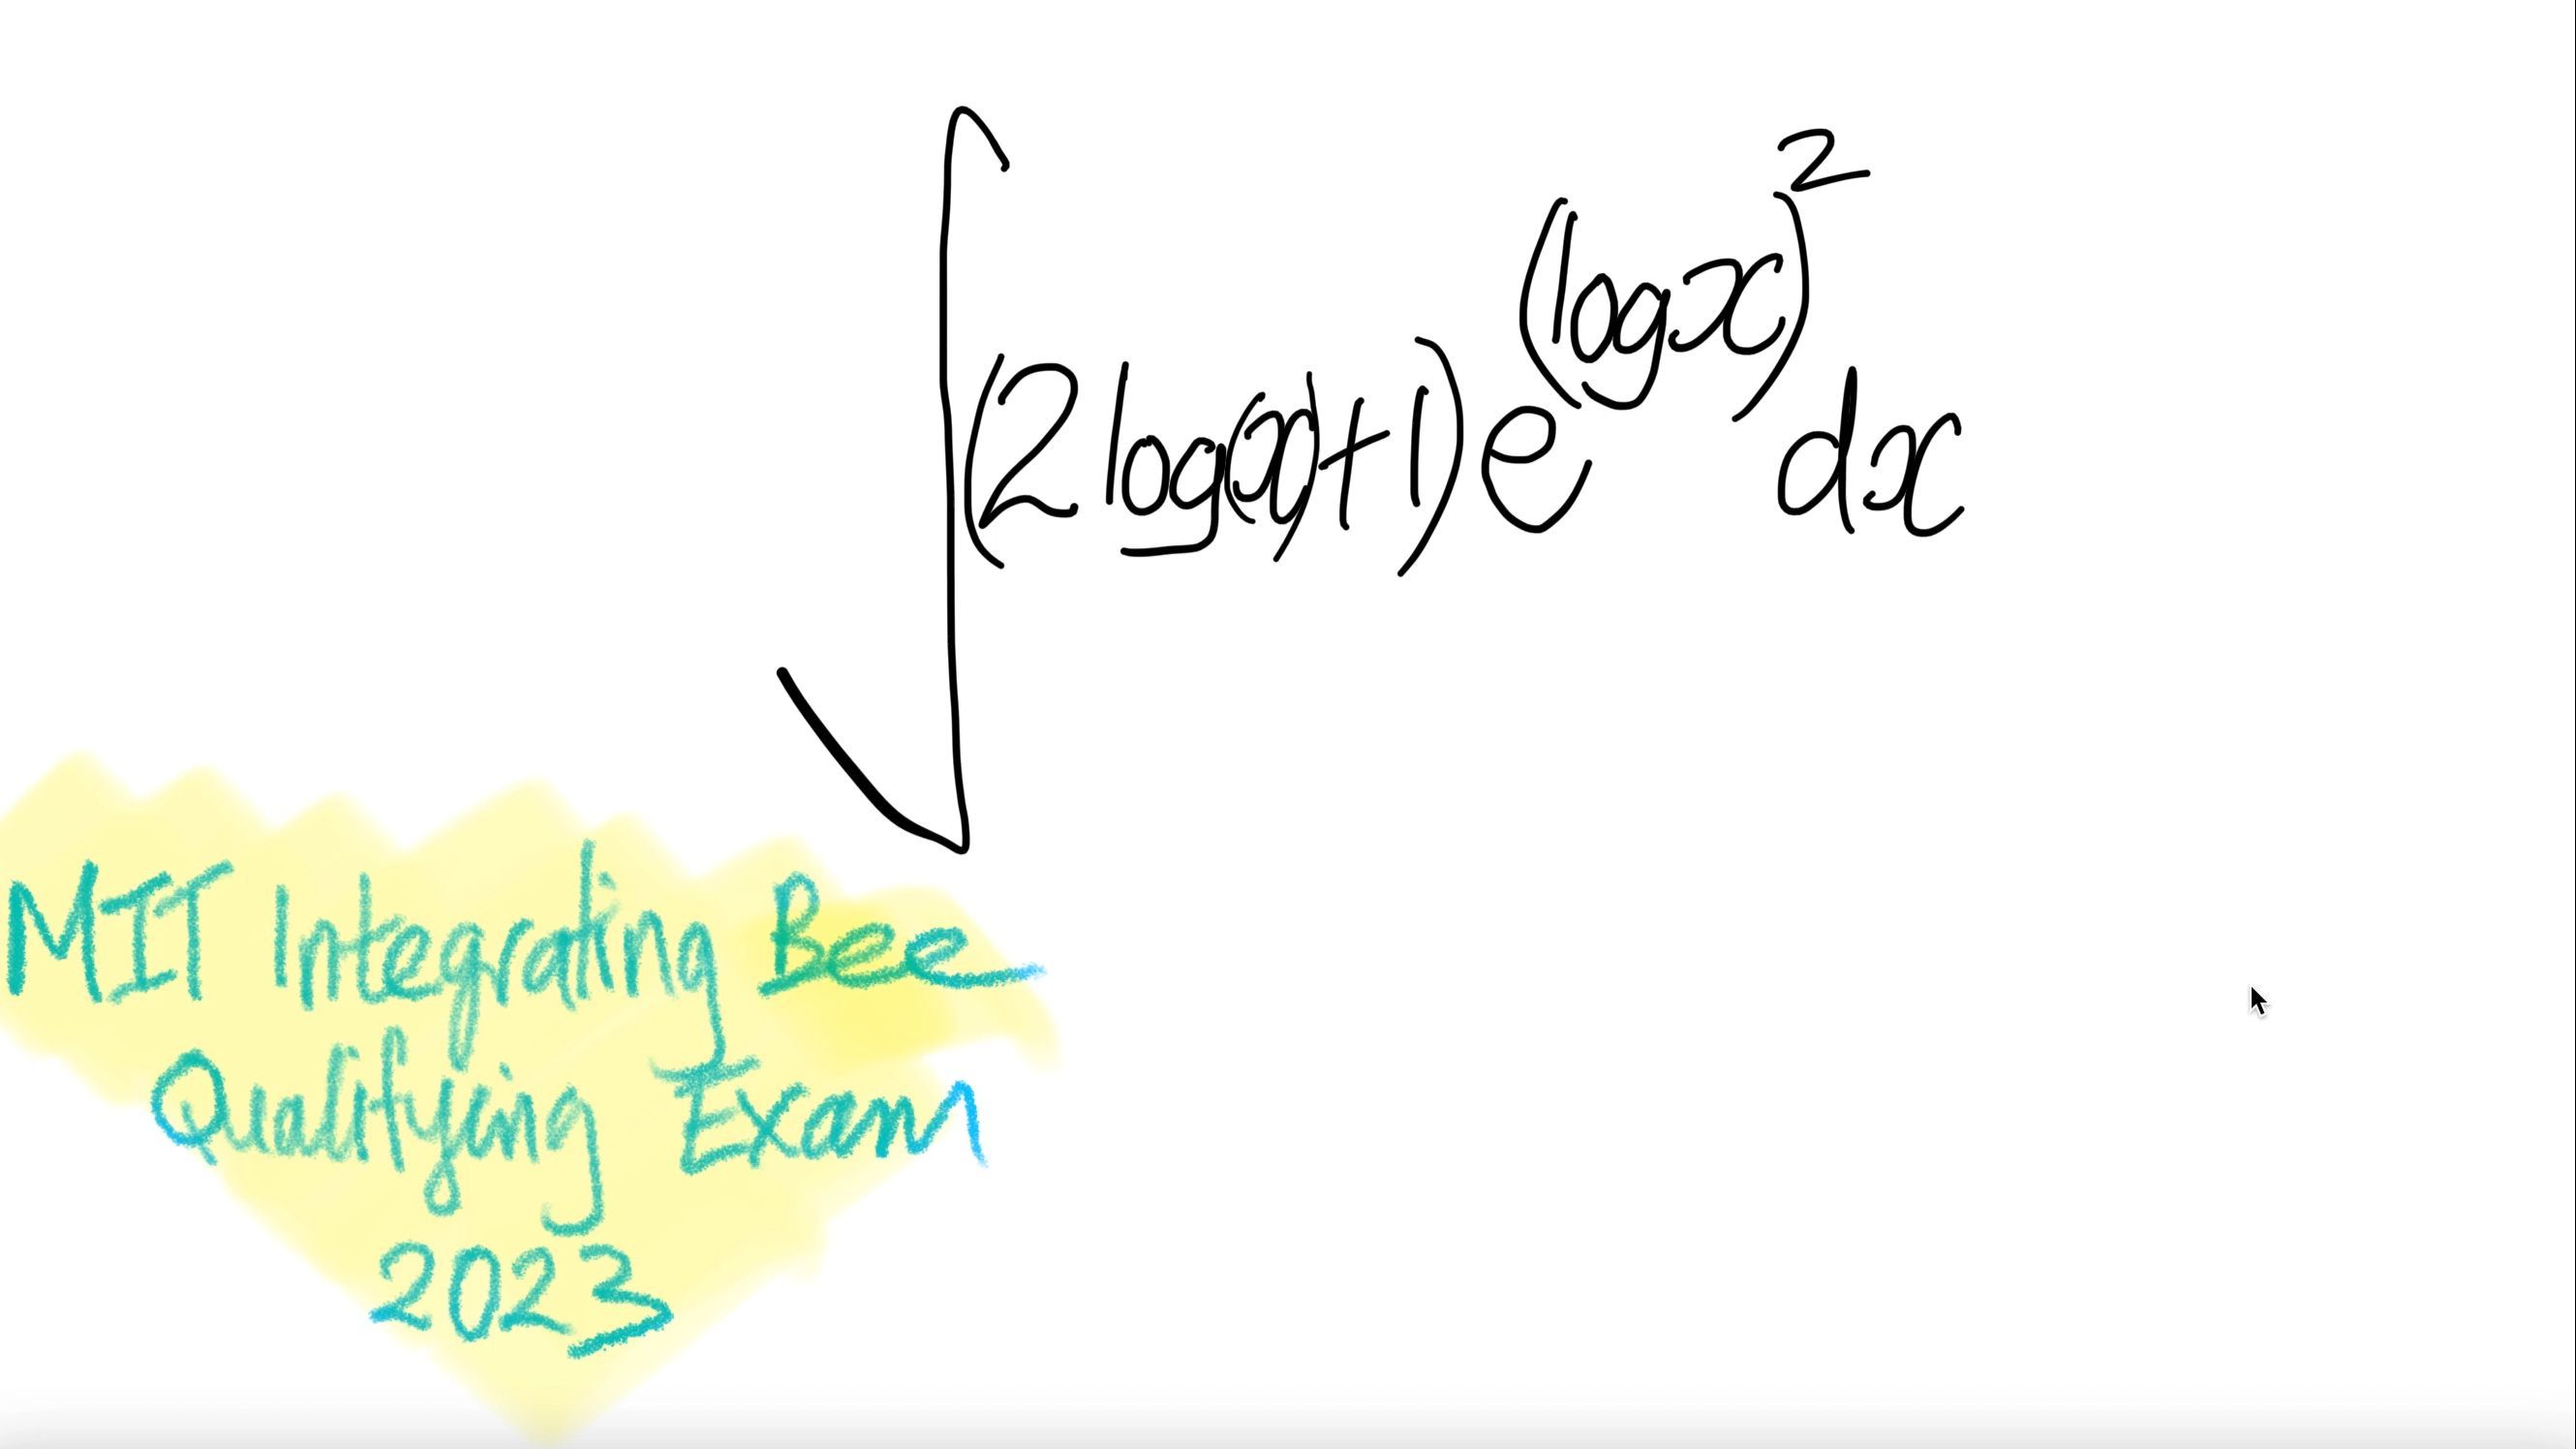 ∫(2log(x)+1)e^(logx)^2 dx
MIT Integrating Bee
Qualifying Exam
2023